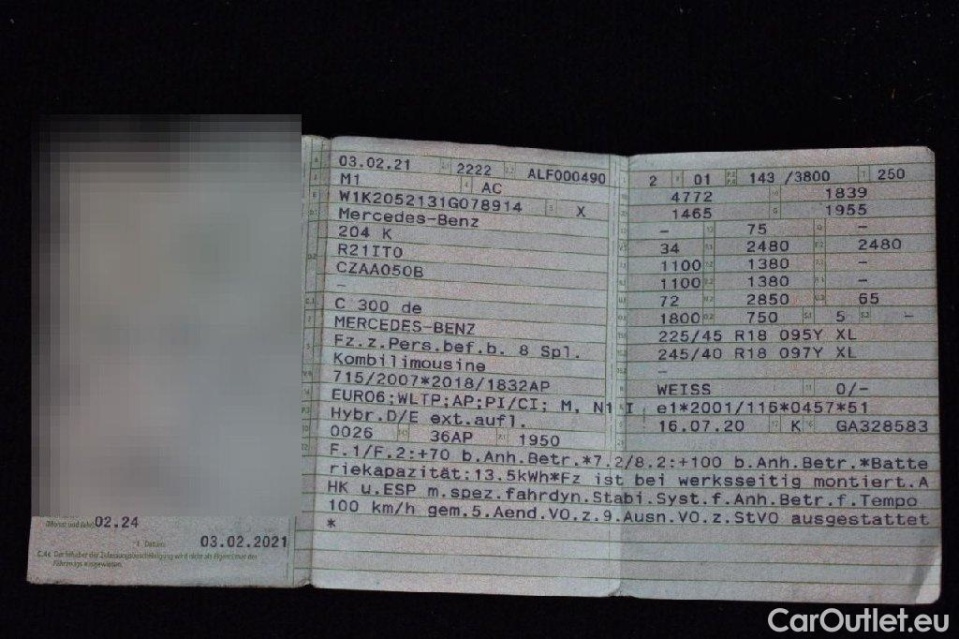 02.24
03.02.2021
03.02.21 2222 ALF000490
M1 AC
W1K2052131G078914 X
Mercedes-Benz
204 K
R21IT0
CZAA050B
–
C 300 de
MERCEDES-BENZ
Fz.z.Pers.bef.b. 8 Spl.
Kombilimousine
715/2007*2018/1832AP
EURO6;WLTP;AP;PI/CI; M, N1 I
Hybr.D/E ext.aufl.
0026 36AP 1950
2 01 143 /3800 250
4772 1839
1465 1955
– 75 –
34 2480 2480
1100 1380 –
1100 1380 –
72 2850 65
1800 750 5 –
225/45 R18 095Y XL
245/40 R18 097Y XL
–
WEISS 0/–
e1*2001/116*0457*51
16.07.20 K GA328583
F.1/F.2:+70 b.Anh.Betr.*7.2/8.2:+100 b.Anh.Betr.*Batte
riekapazität:13.5kWh*Fz ist bei werksseitig montiert.A
HK u.ESP m.spez.fahrdyn.Stabi.Syst.f.Anh.Betr.f.Tempo
100 km/h gem.5.Aend.VO.z.9.Ausn.VO.z.StVO ausgestattet
*
CarOutlet.eu